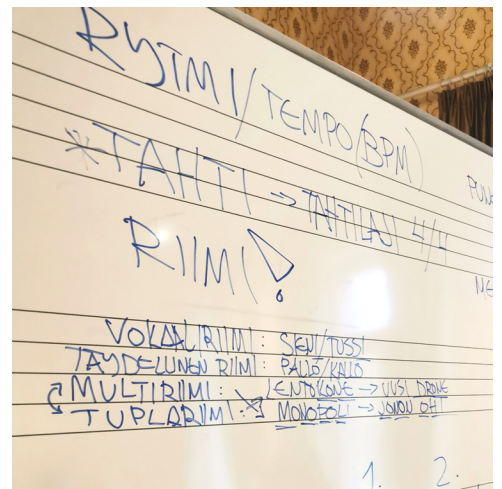 RYTMI/TEMPO(BPM)
*TAHTI → TAHTILAJI 4/4
RIIMI!
VOKAALIRIIMI: SIENI/TUSSI
TÄYDELLINEN RIIMI: PALLO/KALLO
MULTIRIIMI: LENTOKONE → UUSI DRONE
TUPLARIIMI: MONOPOLI → JONON OHI
1. 2.